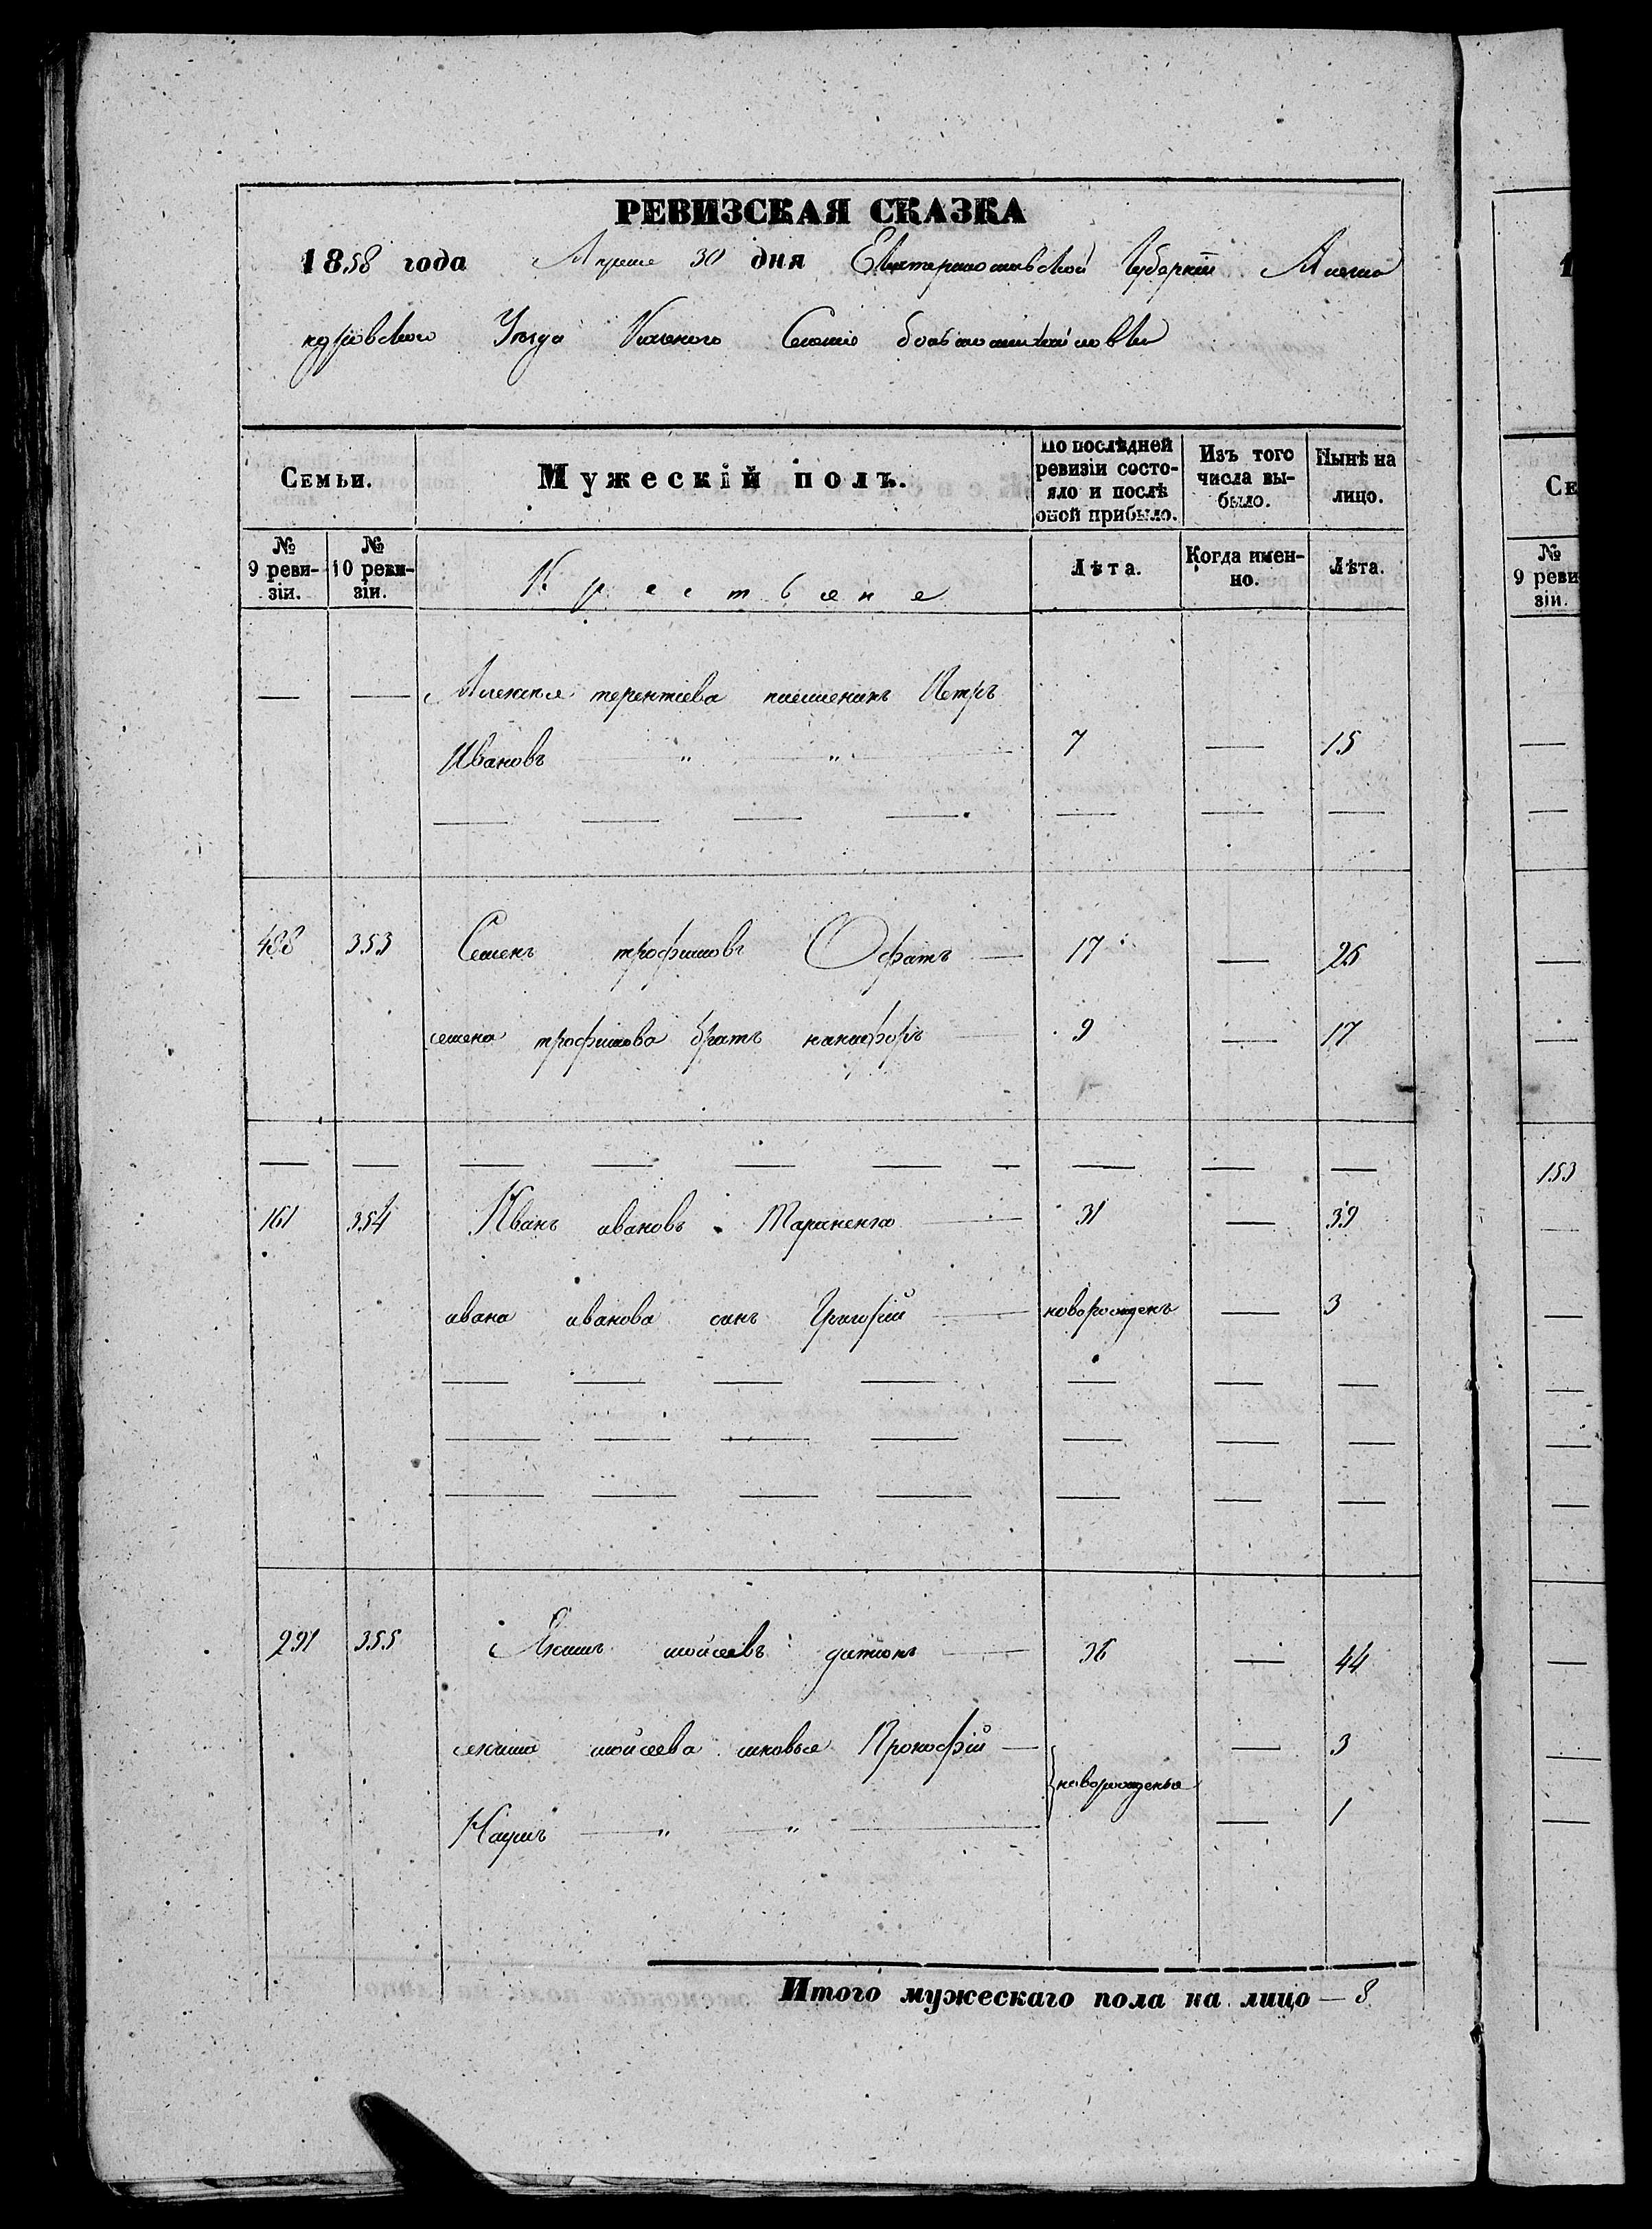 РЕВИЗСКАЯ СКАЗКА
1858 года Апреля 30 дня Екатеринославской Губернии Алекса
ндровского Уезда Селения большомихайловки
Семьи.
Мужескій полъ.
По послѣдней ревизіи состояло и послѣ оной прибыло.
Изъ того числа выбыло.
Нынѣ на лицо.
№ 9 ревизіи.
№ 10 ревизіи.
Крестьяне
Лѣта.
Когда именно.
Лѣта.
— — Алексея терентіева племеникъ Петръ
Ивановъ — " — " — 7 — 15
488 353 Семенъ трофимовъ Офатъ — 17 — 26
семена трофимова братъ никифоръ — 9 — 17
161 354 Иванъ ивановъ Тараненко — 31 — 39
ивана иванова синъ Григорій — новорожденъ — 3
291 355 Якимъ мойсеевъ — 36 — 44
якима мойсеева сновье Прокофій — — 3
}новорождены
Наумъ — " — " — — 1
Итого мужескаго пола на лицо — 8
1
Се
№
9 реви
зіи.
153